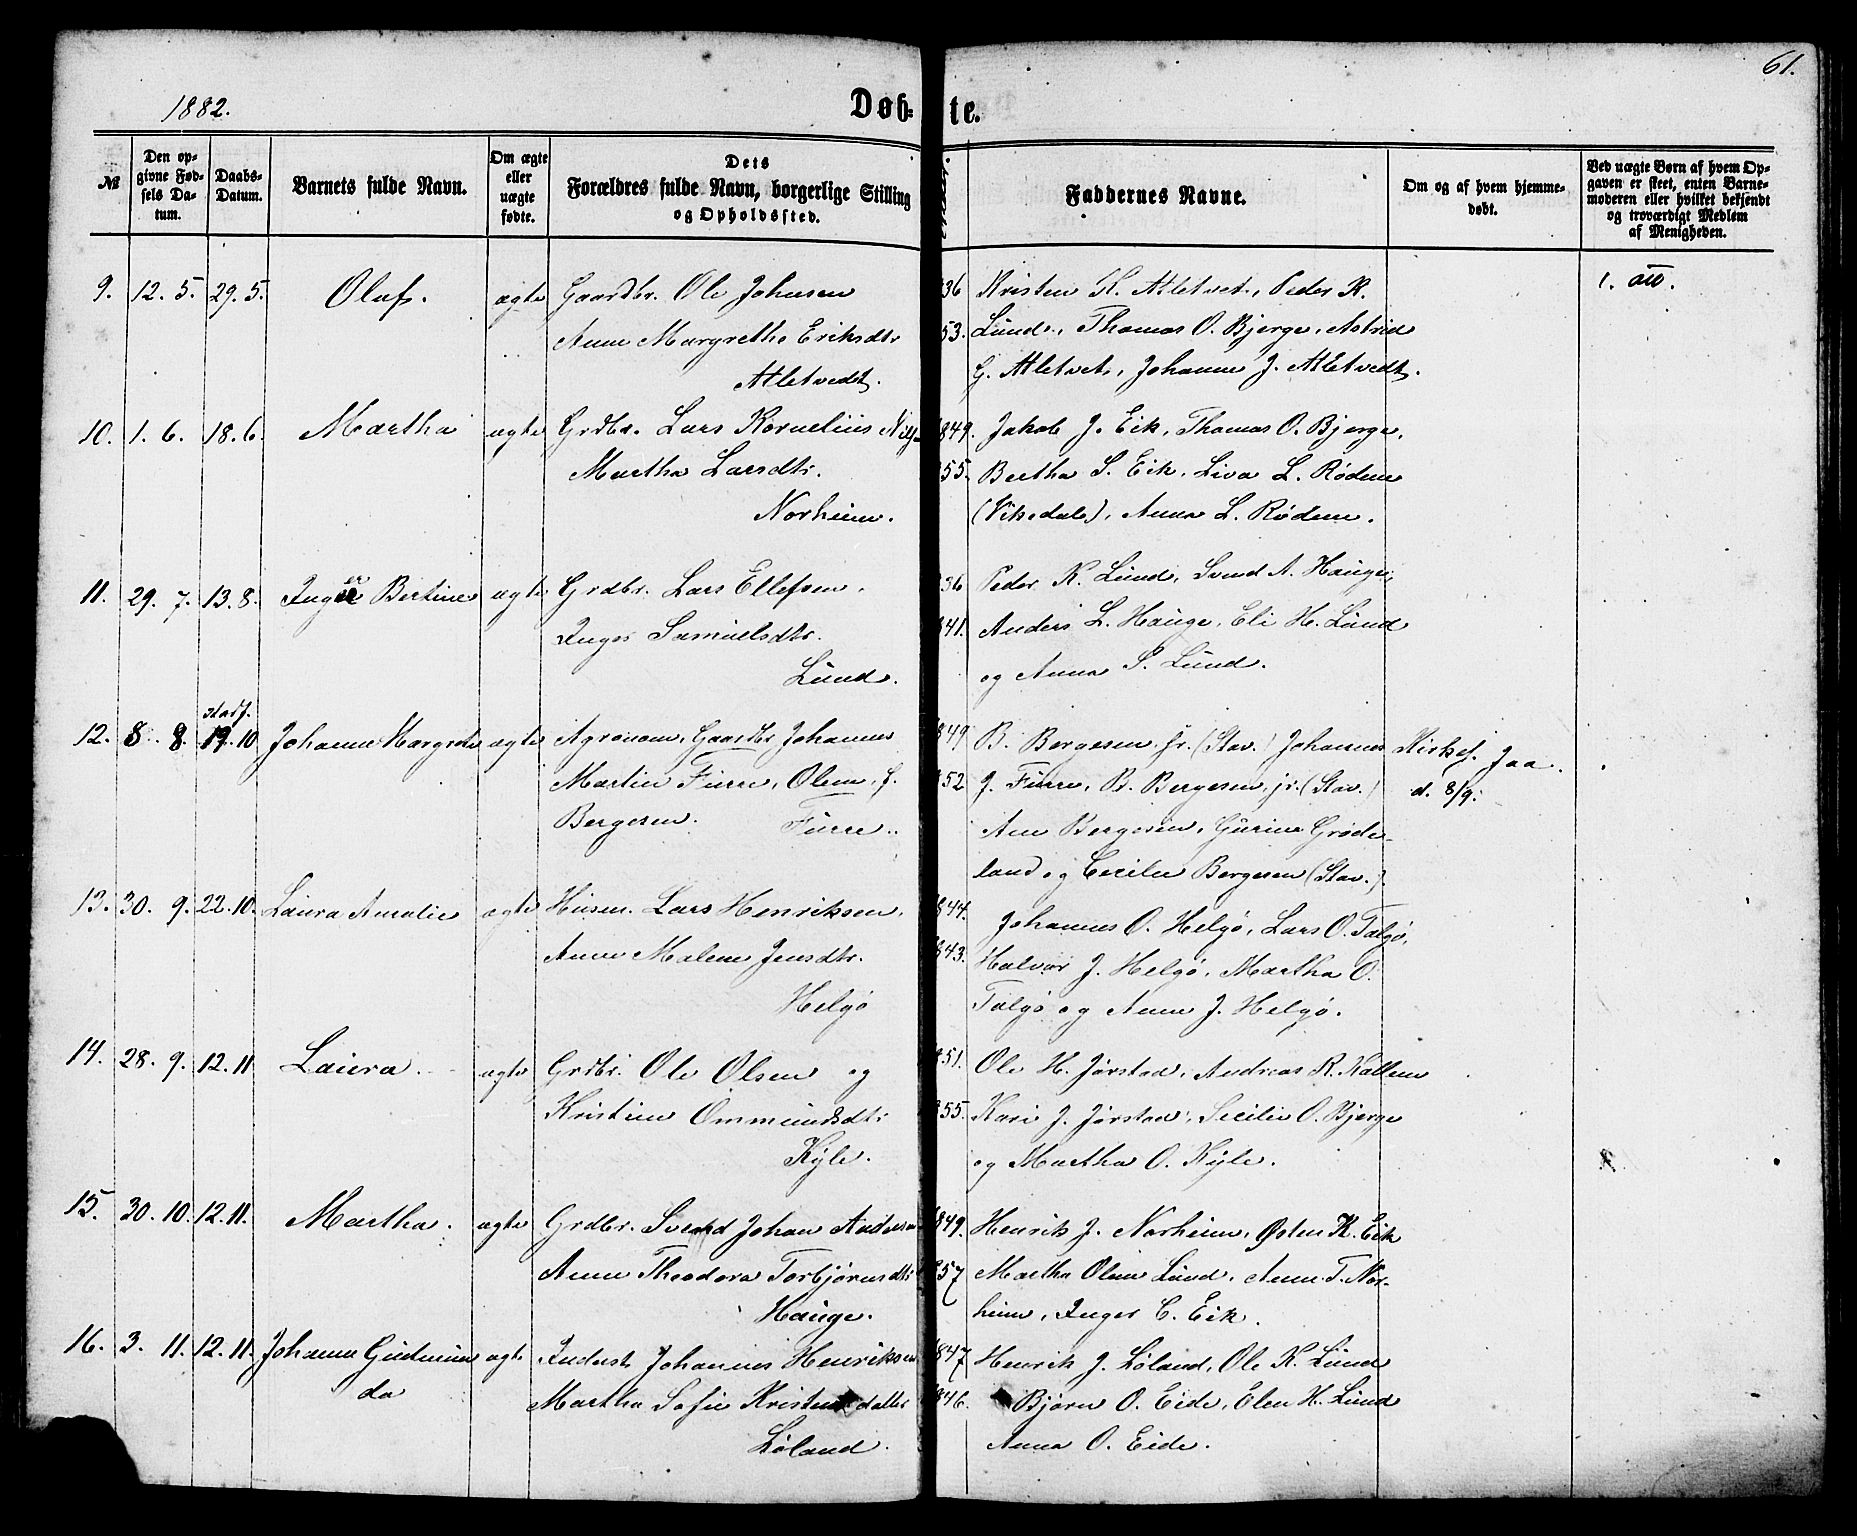 61.
1882.
Døb- te.
№
Den op-
givne Fød-
sels Da-
tum.
Daabs-
Datum.
Barnets fulde Navn.
Om ægte
eller
uægte
fødte.
Dets
Forældres fulde Navn, borgerlige Stilling
og Opholdssted.
Faddernes Navne.
Om og af hvem hjemme-
døbt.
Ved uægte Børn af hvem Op-
gaven er skeet, enten Barne-
moderen eller hvilket bekjendt
og troværdigt Medlem
af Menigheden.
9. 12. 5. 29. 5. Olaf. ægte Gaardbr. Ole Johnsen
Anne Margrethe Eriksdtr
Atletvedt.
36 Kristen K. Atletvet, Peder K.
53. Lunde, Thomas O. Bjerge, Astrid
G. Atletvet, Johanne J. Atletvedt.
1. att.
10. 1. 6. 18. 6. Martha ægte Grdbr. Lars Kornelius Nils
Martha Larsdtr.
Norheim.
849. Jakob J. Eik, Thomas O. Bjerge,
55. Bertha S. Eik, Liva L. Rødne
(Vikedal), Anna L. Rødne.
11. 29. 7. 13. 8. Inger Bertine ægte Grdbr. Lars Ellefsen,
Inger Samuelsdtr.
Lunde.
36 Peder K. Lunde, Svend A. Hauge,
841. Anders L. Hauge, Eli H. Lund
og Anna S. Lunde.
12. 8. 8. stadf. 19. 10 Johanne Margrete ægte Agronom, Gaardbr Johannes
Martin Furre, Oline, f.
Bergesen. Furre.
849 B. Bergesen sr. (Stav.) Johannes
52 J. Furre, B. Bergesen, jr. (Stav.)
Ane Bergesen, Gurine Grøde-
land og Cecilie Bergesen (Stav.).
Kirkes. Jaa.
d. 8/9.
13. 30. 9. 22. 10. Laura Amalie ægte Husm. Lars Henriksen,
Anne Malene Jensdtr.
Helgø
844. Johannes O. Helgø, Lars O. Talgø,
843. Halvor J. Helgø, Martha O.
Talgø og Anne J. Helgø.
14. 28. 9. 12. 11 Laura. ægte Grdbr. Ole Olsen og
Kristine Ommundsdtr
Kyle.
851. Ole H. Jørstad, Andreas R. Kallem
855. Kari J. Jørstad, Secilie O. Bjerge
og Martha O. Kyle.
15. 30. 10. 12. 11. Martha. ægte Grdbr. Svend Johan Anders
Anne Theodora Torbjørnsdtr
Hauge.
849. Henrik J. Norheim, Østen K. Eik
857 Martha Oline Lund, Anne T. Nor-
heim, Inger C. Eik.
16. 3. 11. 12. 11. Johanne Gudmun ægte Inderst Johannes Henriksen
da Martha Sofie Kristensdatter
Løland.
847 Henrik J. Løland, Ole K. Lunde
846. Bjørn O. Eide, Elen H. Lund
Anna O. Eide.